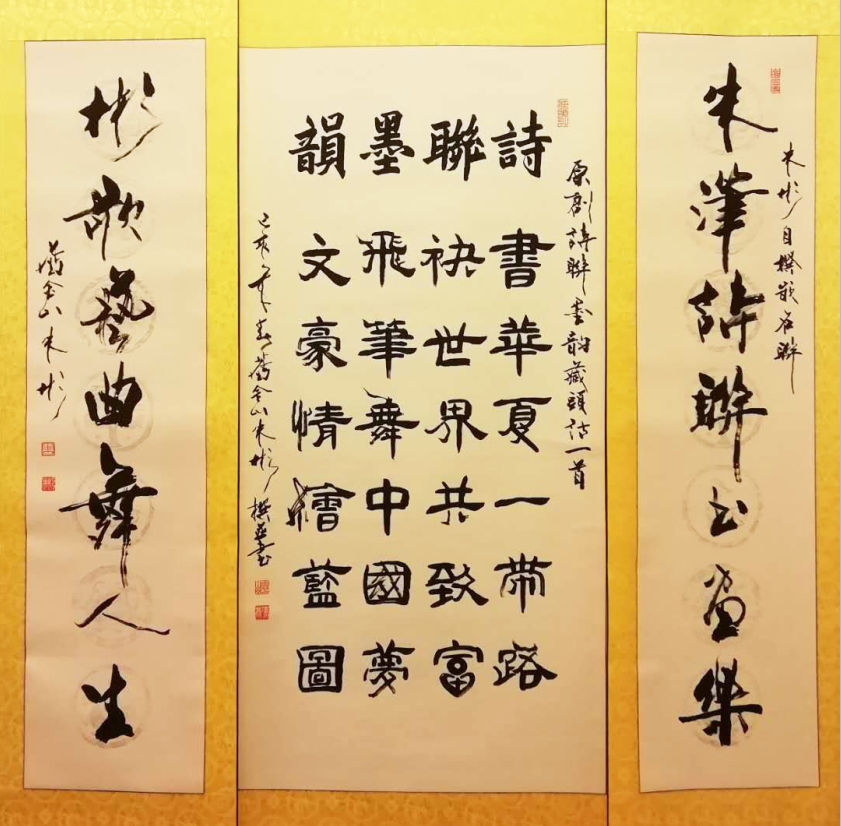 朱彬自撰嵌名聯
朱澤詩聯書畫樂
原創詩聯墨韵藏頭詩一首
詩書華夏一帶路
聯袂世界共致富
墨飛筆舞中國夢
韻文豪情繪藍圖
己亥年春舊金山朱彬撰並書
彬歌藝曲舞人生
舊金山朱彬